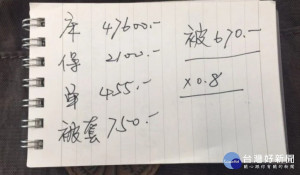 床 47600.-
保 2100.-
單 455.-
被套 750.-
被 670.-
x0.8
台灣好新聞